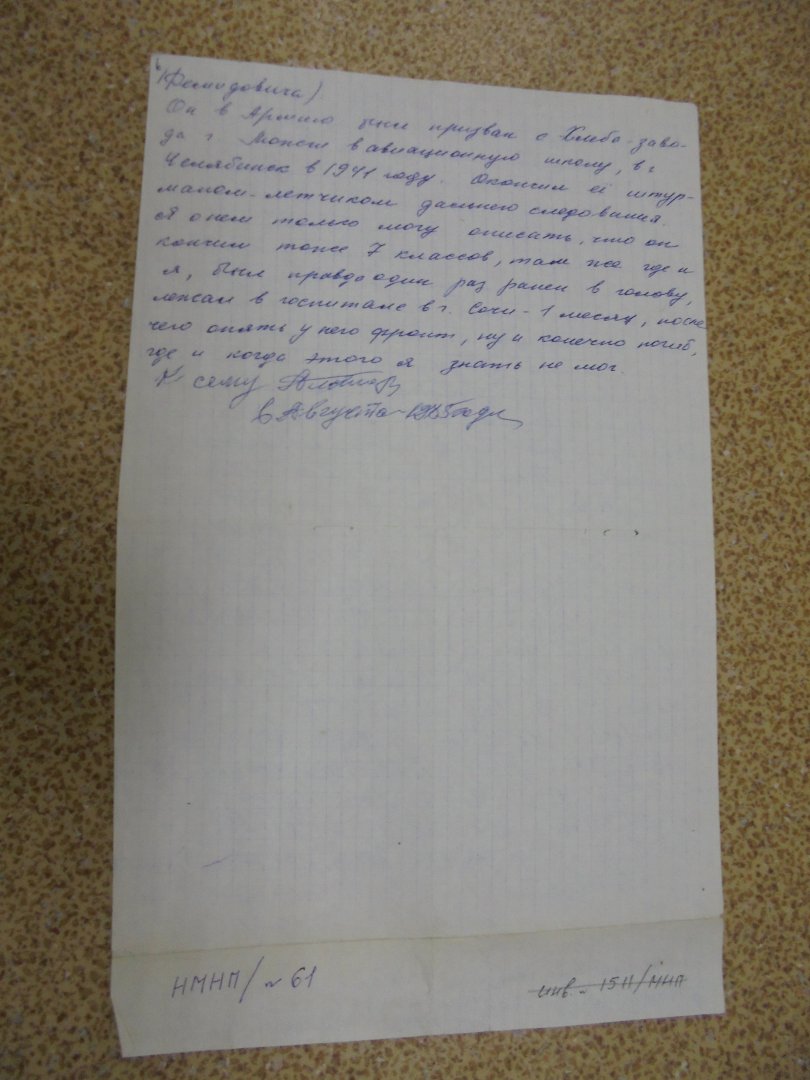 (Фомидовича).
Он в Армию был призван с Хлебо-заво-
да г. Можги в авиационную школу, в г
Челябинск в 1941 году. Окончил её штур-
маном-летчиком дальнего следования.
Я о нем только могу описать, что он
кончил тоже 7 классов, там же где и
я, был правда один раз ранен в голову,
лежал в госпитале в г. Сочи-1 месяц, после
чего опять у него фронт, ну и конечно погиб,
где и когда этого я знать не мог.
К сему
в Августа-1965 года
НМНП/№61
инв. № 1511/МНП